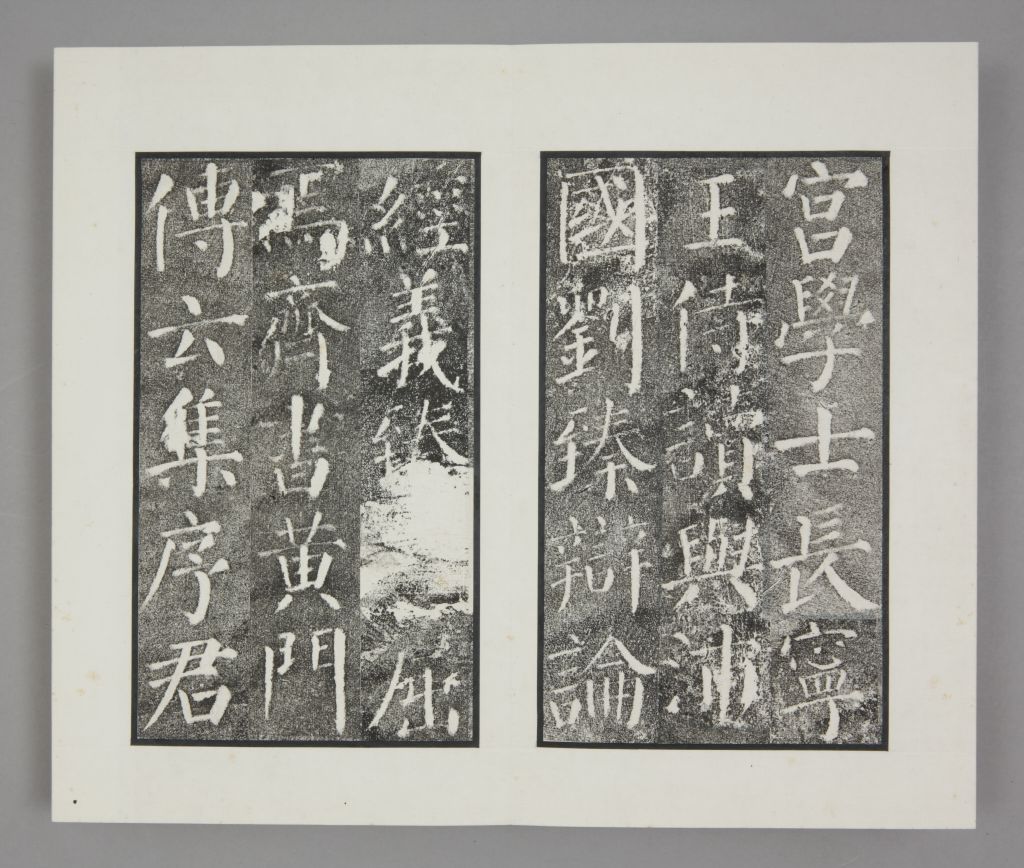 宮學士長寧
王侍讀與沛
國劉臻辯論
經義臻屈
焉齊書黃門
傳云集序君